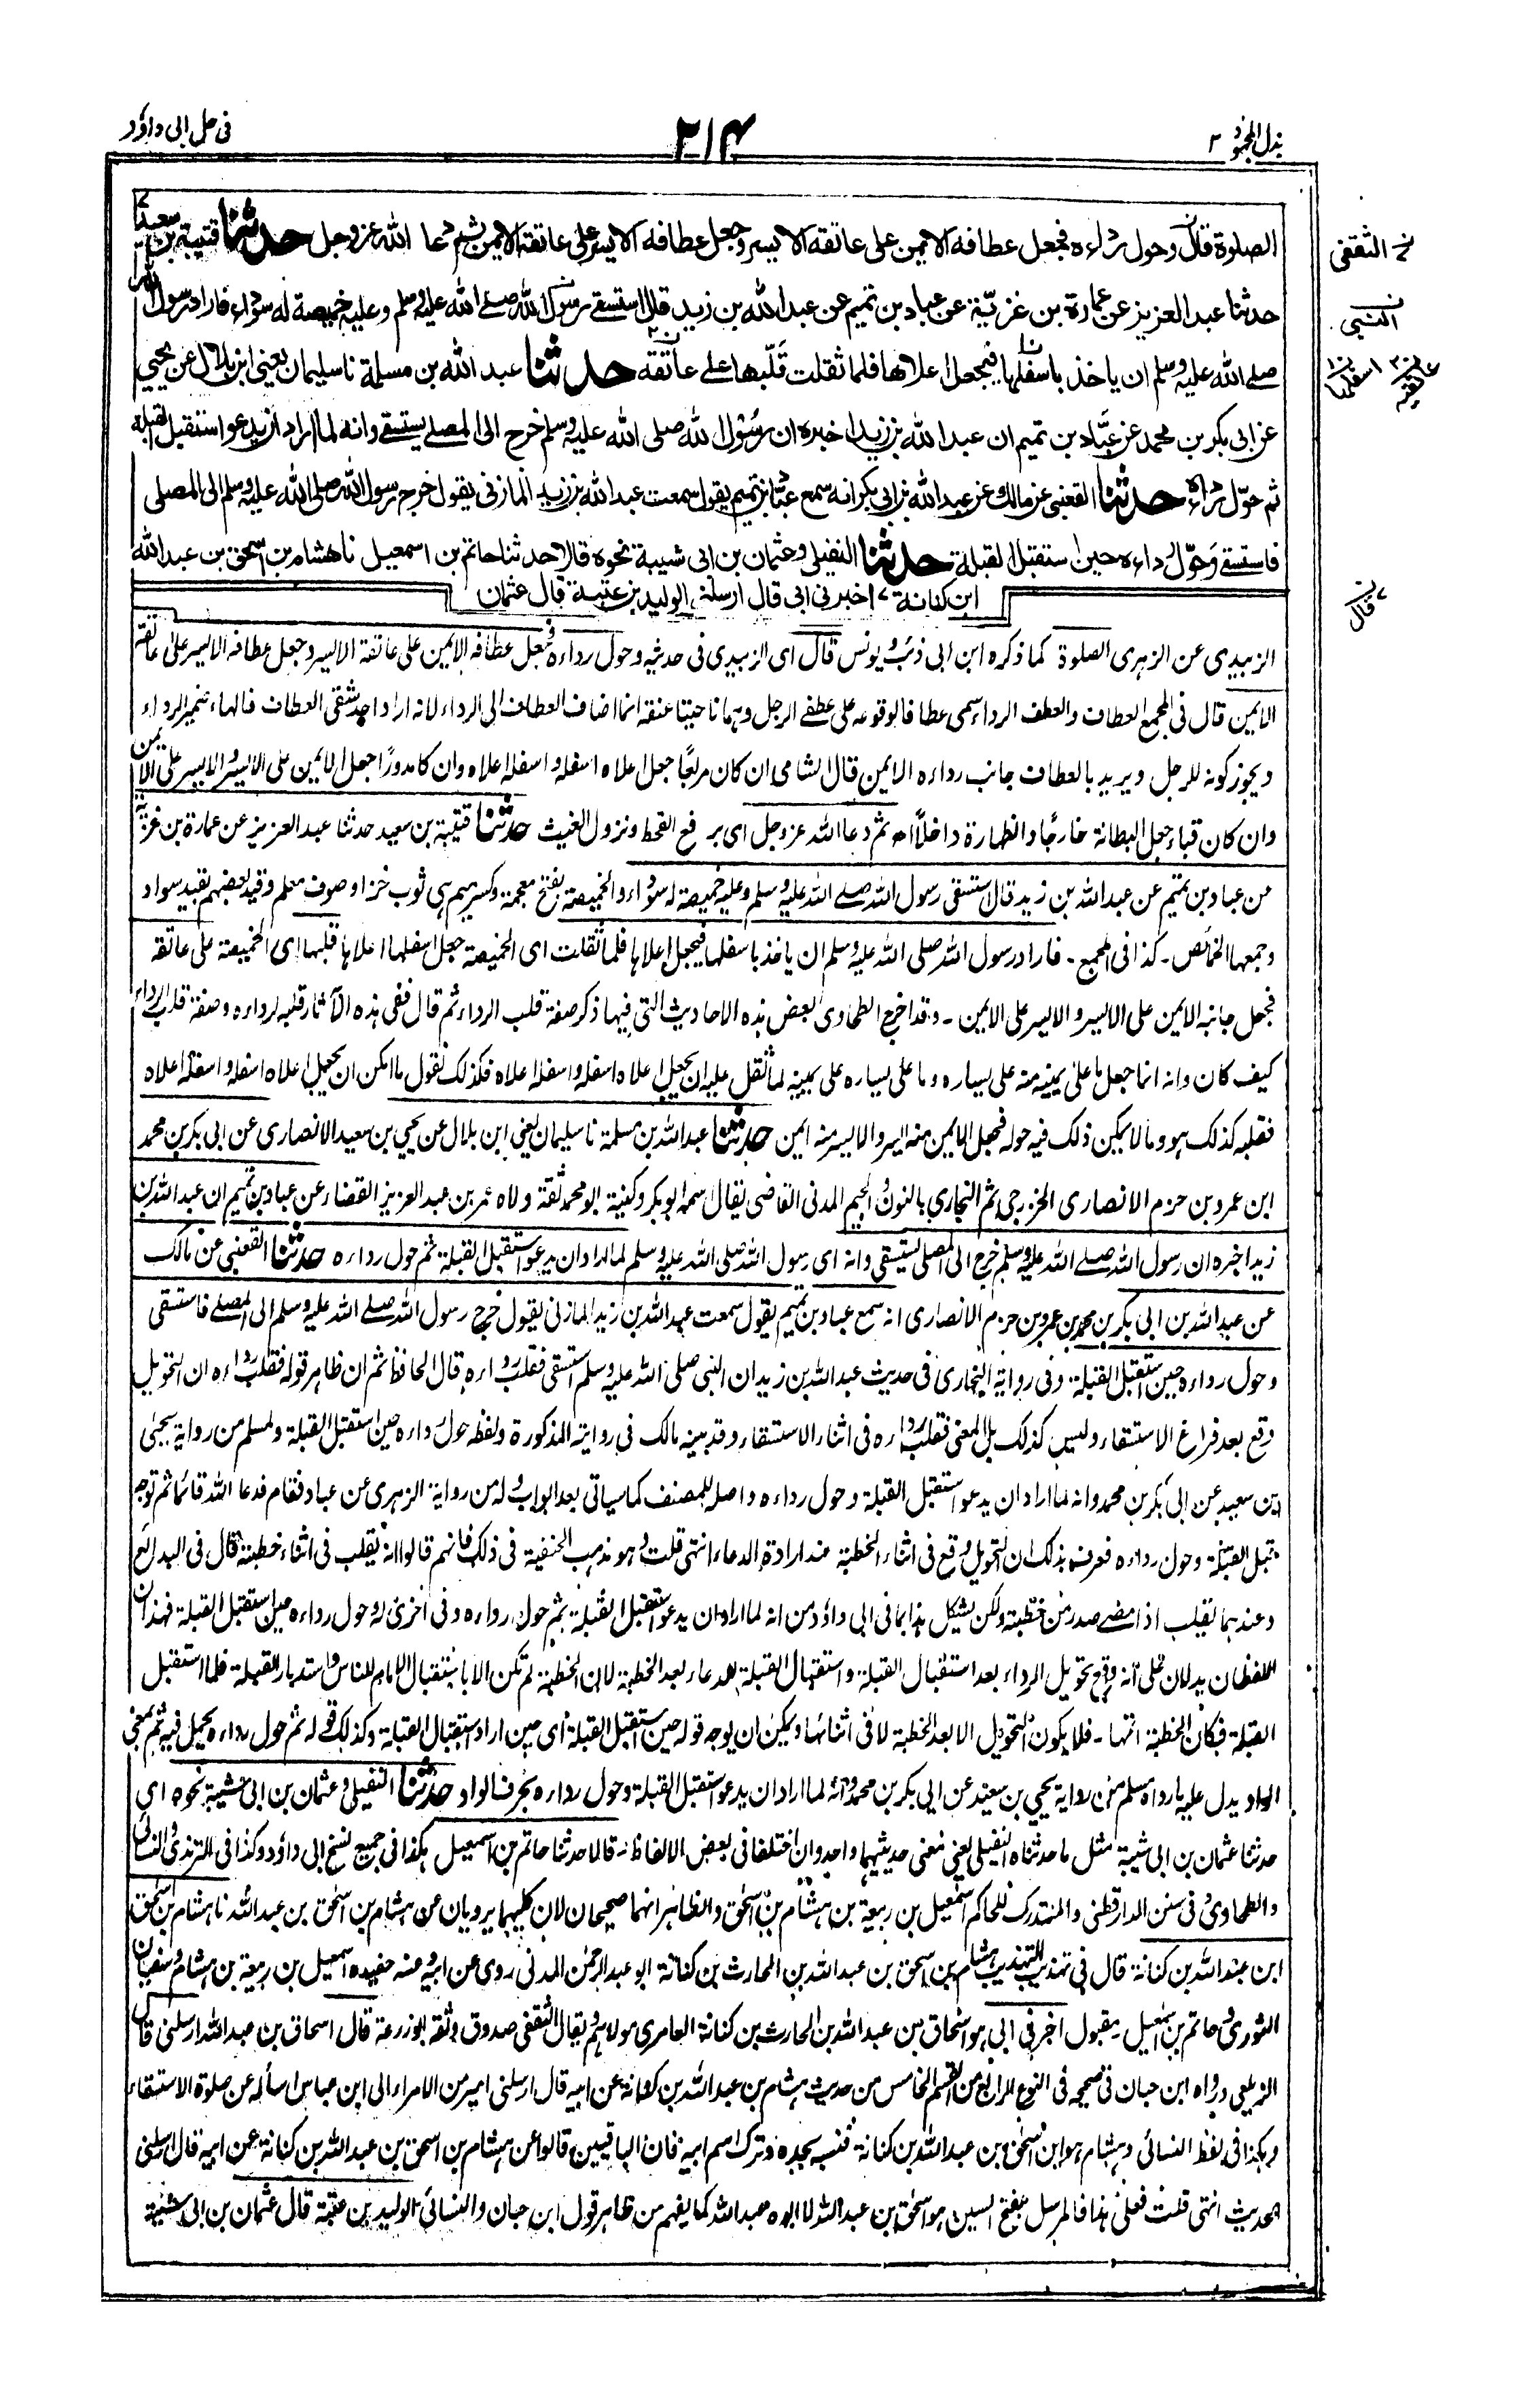 بذل المجهود ٢
٢١٤
فی حل ابی داؤد
الصلوة قال وحول رداءه فجعل عطافه الایمن علی عاتقه الایسر وجعل عطافه الایسر علی عاتقه الایمن ثم دعا الله عزوجل حدثنا قتیبة بن سعید
حدثنا عبد العزیز عن عمارة بن غزیّة عن عباد بن تمیم عن عبد الله بن زید قال استسقی رسول الله صلی الله علیه وسلم وعلیه خمیصة له سوداء فاراد رسول الله
صلی الله علیه وسلم ان یاخذ باسفلها فیجعله اعلاها فلما ثقلت قَلّبها علی عاتقه حدثنا عبد الله بن مسلمة نا سلیمان یعنی ابن بلال عن یحیی
عن ابی بکر بن محمد عن عبّاد بن تمیم ان عبد الله بن زید اخبره ان رسول الله صلی الله علیه وسلم خرج الی المصلی یستسقی وانه لما اراد ان یدعو استقبل القبلة
ثم حوّل رداءه حدثنا القعنبی عن مالك عن عبد الله بن ابی بکر انه سمع عباد بن تمیم یقول سمعت عبد الله بن زید المازنی یقول خرج رسول الله صلی الله علیه وسلم الی المصلی
فاستسقی وَحوّل رداءه حین استقبل القبلة حدثنا النفیلی وعثمان بن ابی شیبة نحوه قالا حدثنا حاتم بن اسمعیل نا هشام بن اسحق بن عبد الله
ابن کنانة اخبرنی ابی قال ارسلنی الولید بن عتبة قال عثمان
ن الثقفی
ن النبی
ن اسفلها
ن عاتقیه
ن قال
الزبیدی عن الزهری الصلوة کما ذکره ابن ابی ذئب ویونس قال ای الزبیدی فی حدیثه وحول رداءه فجعل عطافه الایمن علی عاتقه الایسر وجعل عطافه الایسر علی عاتقه
الایمن قال فی المجمع العطاف والعطف الرداء سمی عطافا لوقوعه علی عطفی الرجل وهما ناحیتا عنقه انما اضاف العطاف الی الرداء لانه اراد احد شقی العطاف فالهاء ضمیر الرداء
ویجوز کونه للرجل ویرید بالعطاف جانب رداءه الایمن قال الشامی ان کان مربعًا جعل اعلاه اسفله واسفله اعلاه وان کان مدورًا جعل الایمن علی الایسر والایسر علی الایمن
وان کان قباء جعل البطانة خارجًا والظهارة داخلاً اه ثم دعا الله عزوجل ای برفع القحط ونزول الغیث حدثنا قتیبة بن سعید حدثنا عبد العزیز عن عمارة بن غزیة
عن عباد بن تمیم عن عبد الله بن زید قال استسقی رسول الله صلی الله علیه وسلم وعلیه خمیصة له سوداء والخمیصة بفتح معجمة وکسر میم هی ثوب خز او صوف معلم وقید بعضهم بقید سواد
وجمعها الخمائص ۔ کذا فی المجمع ۔ فاراد رسول الله صلی الله علیه وسلم ان یاخذ باسفلها فیجعله اعلاها فلما ثقلت ای الخمیصة جعل اسفلها اعلاها قلبها ای الخمیصة علی عاتقه
فجعل جانبه الایمن علی الایسر والایسر علی الایمن ۔ وقد اخرج الطحاوی بعض هذه الاحادیث التی فیها ذکر صفة قلب الرداء ثم قال ففی هذه الآثار قلبه لرداءه وصفة قلب الرداء
کیف کان وانه انما جعل ما علی یمینه منه علی یساره وما علی یساره علی یمینه لما ثقل علیه ان یجعل اعلاه اسفله واسفله اعلاه فکذلك نقول ما امکن ان یجعل اعلاه اسفله واسفله اعلاه
فقلبه کذلك هو وما لا یمکن ذلك فیه حوله فجعل الایمن منه ایسر والایسر منه ایمن حدثنا عبد الله بن مسلمة نا سلیمان یعنی ابن بلال عن یحیی بن سعید الانصاری عن ابی بکر بن محمد
ابن عمرو بن حزم الانصاری الخزرجی ثم النجاری بالنون والجیم المدنی القاضی یقال اسمه ابو بکر وکنیته ابو محمد ثقة ولاه عمر بن عبد العزیز القضاء عن عباد بن تمیم ان عبد الله بن
زید اخبره ان رسول الله صلی الله علیه وسلم خرج الی المصلی یستسقی وانه ای رسول الله صلی الله علیه وسلم لما اراد ان یدعو استقبل القبلة ثم حول رداءه حدثنا القعنبی عن مالك
عن عبد الله بن ابی بکر بن محمد بن عمرو بن حزم الانصاری انه سمع عباد بن تمیم یقول سمعت عبد الله بن زید المازنی یقول خرج رسول الله صلی الله علیه وسلم الی المصلی فاستسقی
وحول رداءه حین استقبل القبلة وفی روایة البخاری فی حدیث عبد الله بن زید ان النبی صلی الله علیه وسلم استسقی فقلب رداءه قال الحافظ ثم ان ظاهر قوله فقلب رداءه ان التحویل
وقع بعد فراغ الاستسقاء ولیس کذلك بل المعنی فقلب رداءه فی اثناء الاستسقاء وقد بینه مالك فی روایته المذکورة ولفظه حول رداءه حین استقبل القبلة ولمسلم من روایة یحیی
ابن سعید عن ابی بکر بن محمد وانه لما اراد ان یدعو استقبل القبلة وحول رداءه واصله للمصنف کما سیاتی بعد ابواب وله من روایة الزهری عن عباد فقام فدعا الله قائما ثم توجه
قبل القبلة وحول رداءه فعرف بذلك ان التحویل وقع فی اثناء الخطبة عند ارادة الدعاء انتهی قلت وهو مذهب الحنفیة فی ذلك فانهم قالوا انه یقلب فی اثناء خطبته قال فی البدائع
وعندهما یقلب اذا مضی صدر من خطبته ولکن یشکل هذا بما فی ابی داؤد من انه لما اراد ان یدعو استقبل القبلة ثم حول رداءه وفی اخری له وحول رداءه حین استقبل القبلة فهذان
اللفظان یدلان علی انه وقع تحویل الرداء بعد استقبال القبلة واستقبال القبلة للدعاء بعد الخطبة لان الخطبة لم تکن الا باستقبال الامام للناس واستدبار القبلة فلما استقبل
القبلة فکان الخطبة انتها ۔ فلا یکون التحویل الا بعد الخطبة لا فی اثنائها ویمکن ان یوجه قوله حین استقبل القبلة ای حین اراد استقبال القبلة وکذلك قوله ثم حول رداءه یحمل فیه ثم بمعنی
الواو یدل علیه ما رواه مسلم من روایة یحیی بن سعید عن ابی بکر بن محمد وانه لما اراد ان یدعو استقبل القبلة وحول رداءه بحرف الواو حدثنا النفیلی وعثمان بن ابی شیبة نحوه ای
حدثنا عثمان بن ابی شیبة مثل ما حدثناه النفیلی یعنی معنی حدیثیهما واحد وان اختلفا فی بعض الالفاظ قالا حدثنا حاتم بن اسمعیل هکذا فی جمیع نسخ ابی داؤد وکذا فی الترمذی والنسائی
والطحاوی وفی سنن الدارقطنی والمستدرك للحاکم اسمعیل بن ربیعة بن هشام بن اسحق والظاهر انهما صحیحان لان کلیهما یرویان عن هشام بن اسحق بن عبد الله نا هشام بن اسحق
ابن عبد الله بن کنانة قال فی تهذیب التهذیب هشام بن اسحق بن عبد الله بن الحارث بن کنانة ابو عبد الرحمن المدنی روی عن ابیه وعنه حفیده اسمعیل بن ربیعة بن هشام وسفیان
الثوری وحاتم بن اسمعیل مقبول اخبرنی ابی هو اسحاق بن عبد الله بن الحارث بن کنانة العامری مولاهم ویقال الثقفی صدوق وثقه ابو زرعة قال اسحاق بن عبد الله ارسلنی قال
الزیلعی ورواه ابن حبان فی صحیحه فی النوع الرابع من القسم الخامس من حدیث هشام بن عبد الله بن کنانة عن ابیه قال ارسلنی امیر من الامراء الی ابن عباس اسأله عن صلوة الاستسقاء
وهکذا فی لفظ النسائی وهشام هو ابن اسحق بن عبد الله بن کنانة فنسبه لجده وترك اسم ابیه فان الباقیین قالوا عن هشام بن اسحق بن عبد الله بن کنانة عن ابیه قال ارسلنی
الحدیث انتهی قلت فعلی هذا فالمرسل بفتح السین هو اسحق بن عبد الله لا ابوه عبد الله کما یفهم من ظاهر قول ابن حبان والنسائی الولید بن عقبة قال عثمان بن ابی شیبة